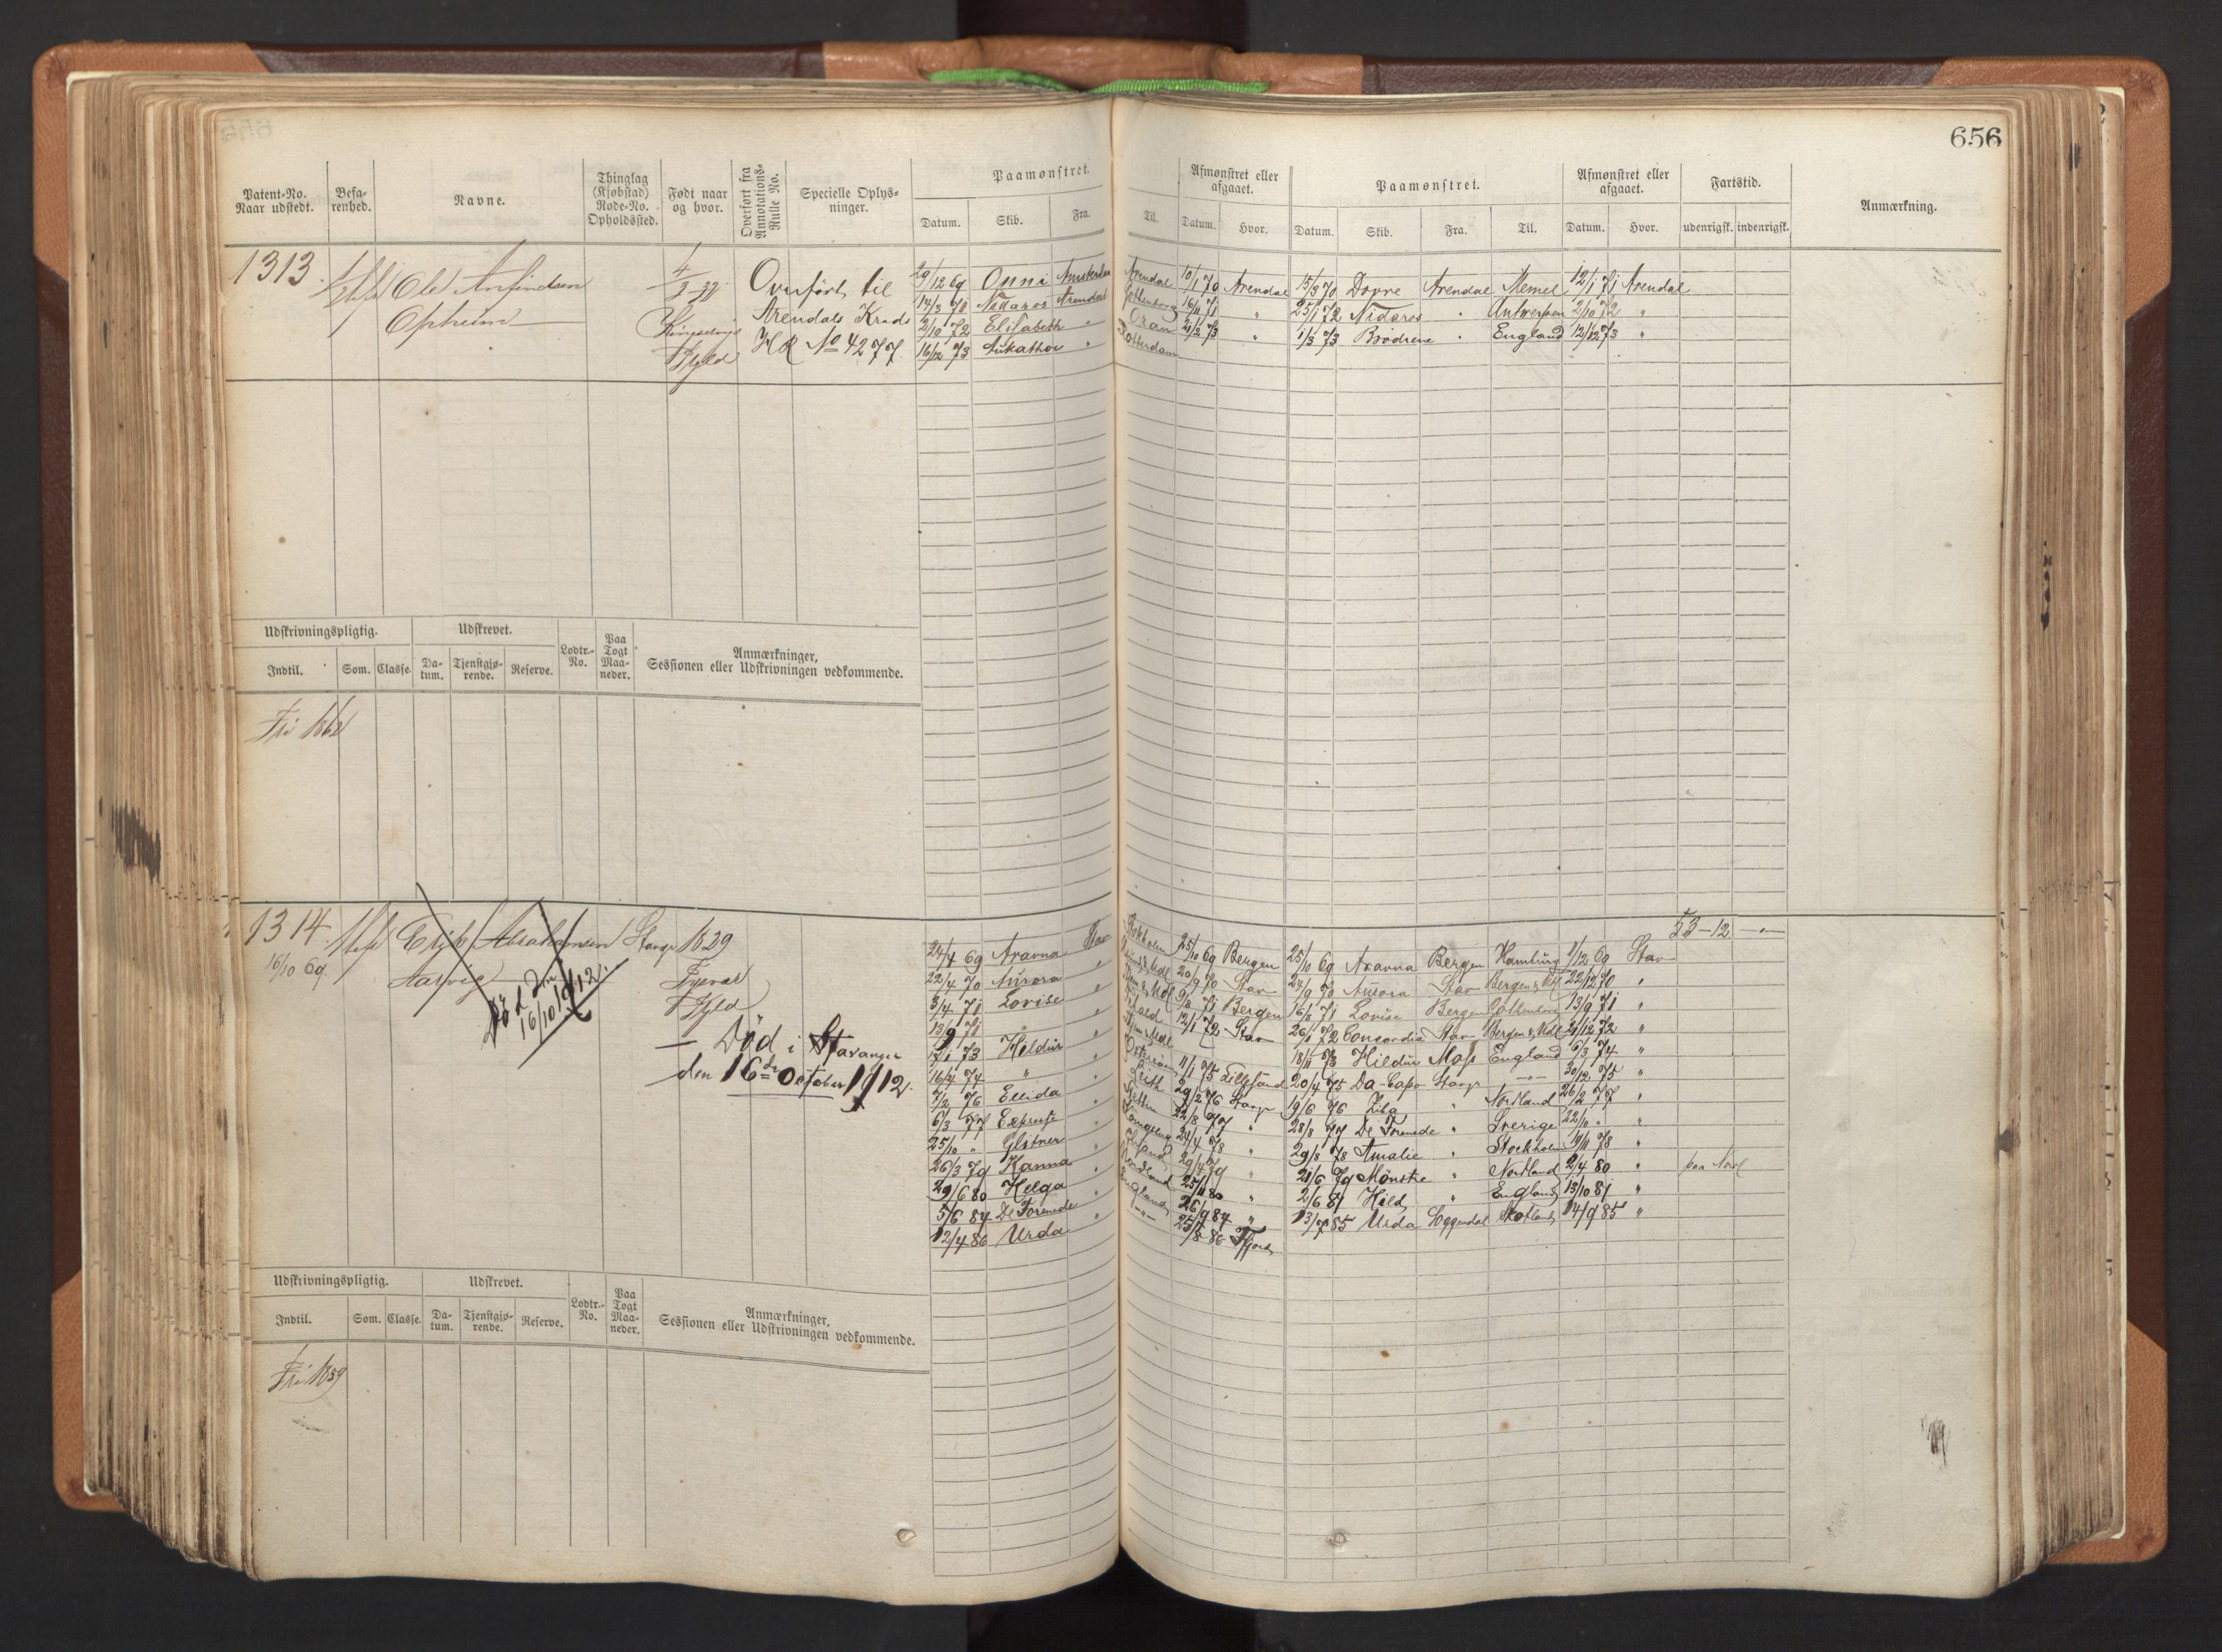 656
Patent-No. Naar udstedt.
Befa-renhed.
Navne.
Thinglag (Kjøbstad) Rode-No. Opholdssted.
Født naar og hvor.
Overført fra Annotations-Rulle No.
Specielle Oplys-ninger.
Paamønstret.
Datum. Skib. Fra. Til.
Afmønstret eller afgaaet.
Datum. Hvor.
Paamønstret.
Datum. Skib. Fra. Til.
Afmønstret eller afgaaet.
Datum. Hvor.
Fartstid.
udenrigsk. indenrigsk.
Anmærkning.
1313
Ole Anfindsen
Opheim
Overført til
Arendals Kreds
HR No 4277
29/12 69 Onni Amsterdam Arendal 10/1 70 Arendal 15/3 70 Dovre Arendal Memel 12/1 71 Arendal
14/3 70 Nidaros Arendal Gottenborg 16/11 71 " 25/1 72 Nidaros " Antwerpen 2/10 72 "
2/10 72 Elisabeth " Oran 21/2 73 " 1/3 73 Brødrene " England 12/12 73 "
16/12 73 " Rotterdam
Udskrivningspligtig.
Indtil. Som. Classe.
Udskrevet.
Da-tum. Tjenstgjø-rende. Reserve.
Lodtr.-No.
Paa Togt Maa-neder.
Anmærkninger,
Sessionen eller Udskrivningen vedkommende.
Fri 1862
1314
16/10 69
Erik Abrahamsen
Aasvig
Stavgr
1829
Tysvær
Død den
16/10 1912.
Død i Stavanger
den 16de October 1912.
53-12
24/4 69 Aravna Stav Stokholm 25/10 69 Bergen 25/10 69 Aravna Bergen Hamburg 1/12 69 Stav
22/4 70 Aurora " 20/9 70 Stav 24/9 70 Aurora Stav 22/12 70 "
3/4 71 Lovise " 9/8 71 Bergen 16/8 71 Lovise Bergen Gottenborg 13/9 71 "
18/9 71 " " 12/1 72 Stav 26/1 72 Concordia Stav 21/12 72 "
Hildur " 18/11 73 Hildur Moss England 6/3 74 "
16/4 74 " " 11/1 75 Lillesand 20/4 75 Da-Capo Stavgr 30/12 75 "
7/2 76 Ellida " Leith 29/2 76 Stavgr 19/6 76 " Nordland 20/2 77 "
6/3 77 Expresse " Stettin 22/8 77 " 28/8 77 De Forenede " Sverige 22/10 " "
25/10 " Glitner " 24/4 78 " 29/8 78 Amalie " Stockholm 19/11 78 "
26/3 79 Hanna " 29/4 79 " 21/6 79 Mønstre " Nordland 2/4 80 "
29/6 80 Helga " Nordland 25/11 80 " 2/6 81 Hild " England 13/10 81 "
5/6 84 De Forenede " England 26/9 84 " 13/7 85 Urda Soggendal Skotland 14/9 85 "
12/4 86 Urda " 25/8 86
Udskrivningspligtig.
Indtil. Som. Classe.
Udskrevet.
Da-tum. Tjenstgjø-rende. Reserve.
Lodtr.-No.
Paa Togt Maa-neder.
Anmærkninger,
Sessionen eller Udskrivningen vedkommende.
Fri 1859